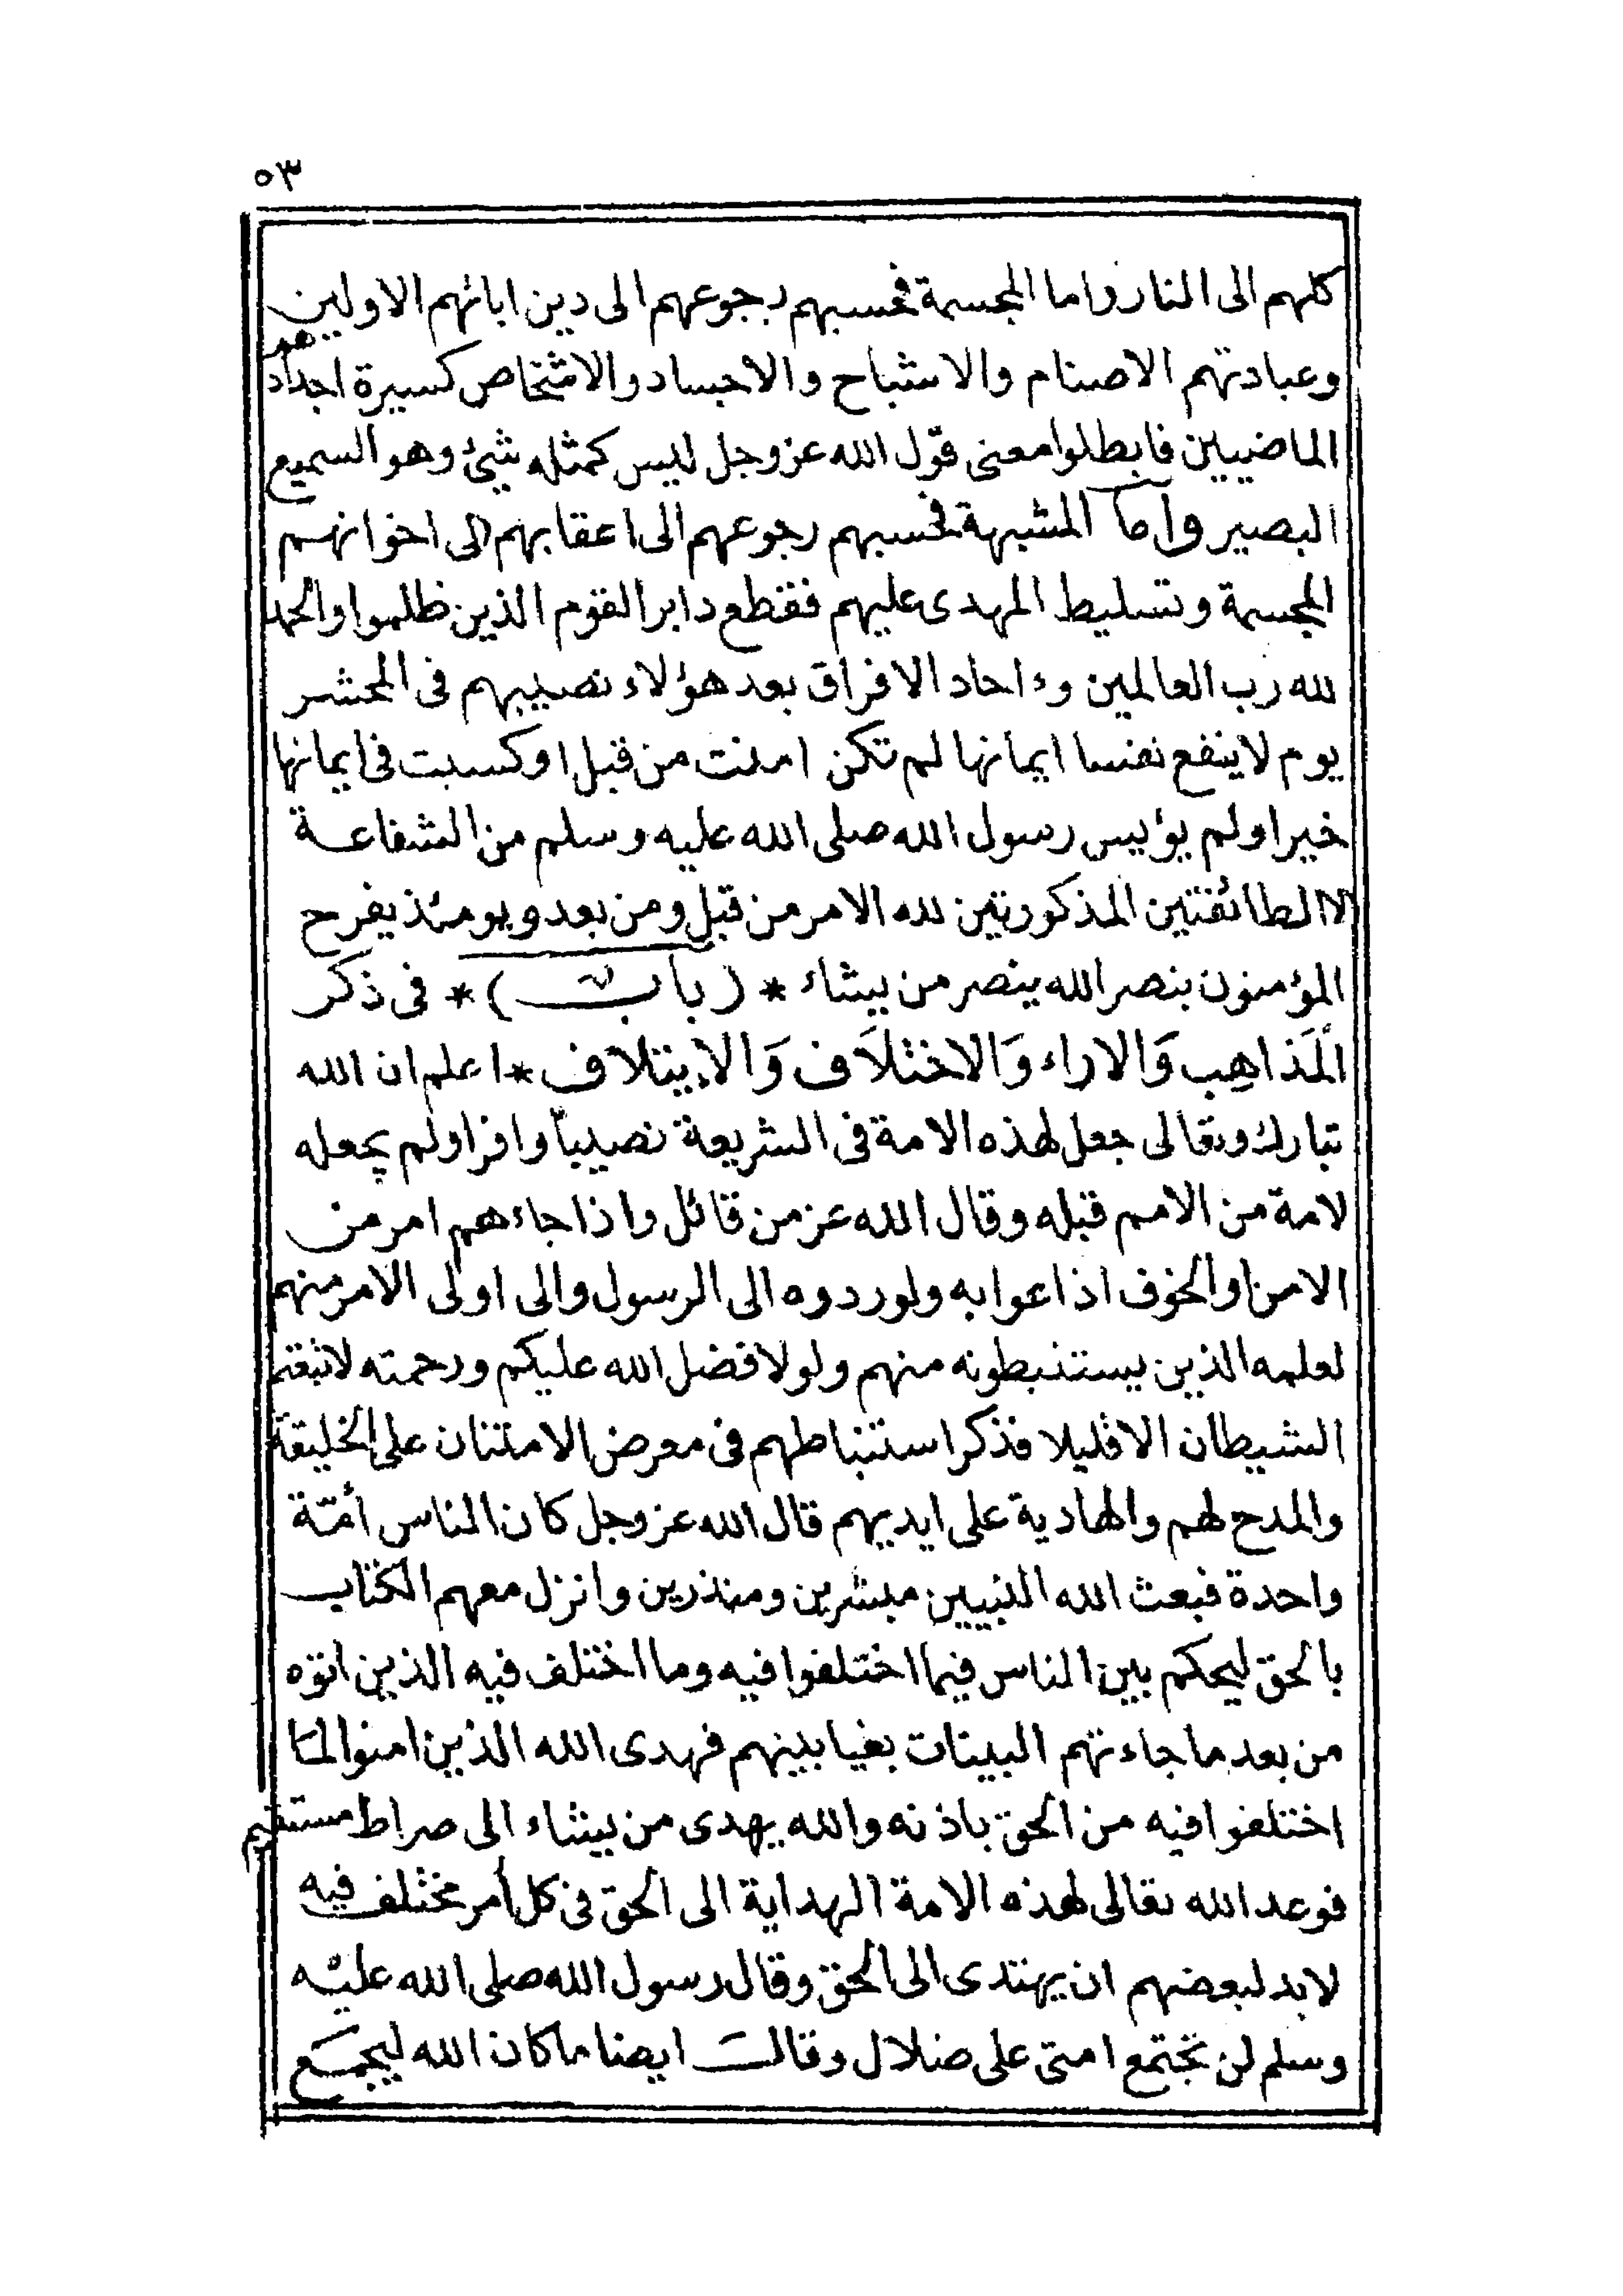 ٥٣
كلهم الى النار واما المجسمة فحسبهم رجوعهم الى دين ابائهم الاولين
وعبادتهم الاصنام والاشباح والاجساد والاشخاص كسيرة اجدادهم
الماضيين فابطلوا معنى قول الله عز وجل ليس كمثله شيئ وهو السميع
البصير وأما المشبهة فحسبهم رجوعهم الى اعقابهم الى اخوانهم
المجسمة وتسليط المهدى عليهم فقطع دابر القوم الذين ظلموا والحمد
لله رب العالمين وءاحاد الافراق بعد هؤلاء نصيبهم فى المحشر
يوم لا ينفع نفسا ايمانها لم تكن امنت من قبل او كسبت فى ايمانها
خيرا ولم يؤيس رسول الله صلى الله عليه وسلم من الشفاعة
الا الطائفتين المذكورتين لله الامر من قبل ومن بعد ويومئذ يفرح
المؤمنون بنصر الله ينصر من يشاء * (باب) * فى ذكر
المَذاهِب وَالاراء وَالاختلَاف وَالايتلاف * اعلم ان الله
تبارك وتعالى جعل لهذه الامة فى الشريعة نصيباً وافرا ولم يجعله
لامة من الامم قبله وقال الله عز من قائل واذا جاءهم امر من
الامن او الخوف اذاعوا به ولو ردوه الى الرسول والى اولى الامر منهم
لعلمه الذين يستنبطونه منهم ولولا فضل الله عليكم ورحمته لاتبعتم
الشيطان الا قليلا فذكر استنباطهم فى معرض الامتنان على الخليقة
والمدح لهم والهادية على ايديهم قال الله عز وجل كان الناس أمّة
واحدة فبعث الله النبيين مبشرين ومنذرين وانزل معهم الكتاب
بالحق ليحكم بين الناس فيما اختلفوا فيه وما اختلف فيه الذين اتوه
من بعد ما جاءتهم البينات بغيا بينهم فهدى الله الذين امنوا لما
اختلفوا فيه من الحق باذنه والله يهدى من يشاء الى صراط مستقيم
فوعد الله تعالى لهذه الامة الهداية الى الحق فى كل أمر مختلف فيه
لا بد لبعضهم ان يهتدى الى الحق وقال رسول الله صلى الله عليه
وسلم لن تجتمع امتى على ضلال وقال ايضا ما كان الله ليجمع